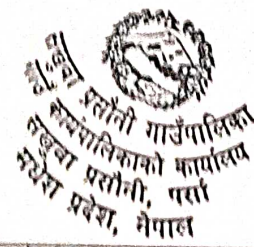 सखुवा प्रसौनी गाउँपालिका
गाउँपालिकाको कार्यालय
सखुवा प्रसौनी, पर्सा
मधेश प्रदेश, नेपाल